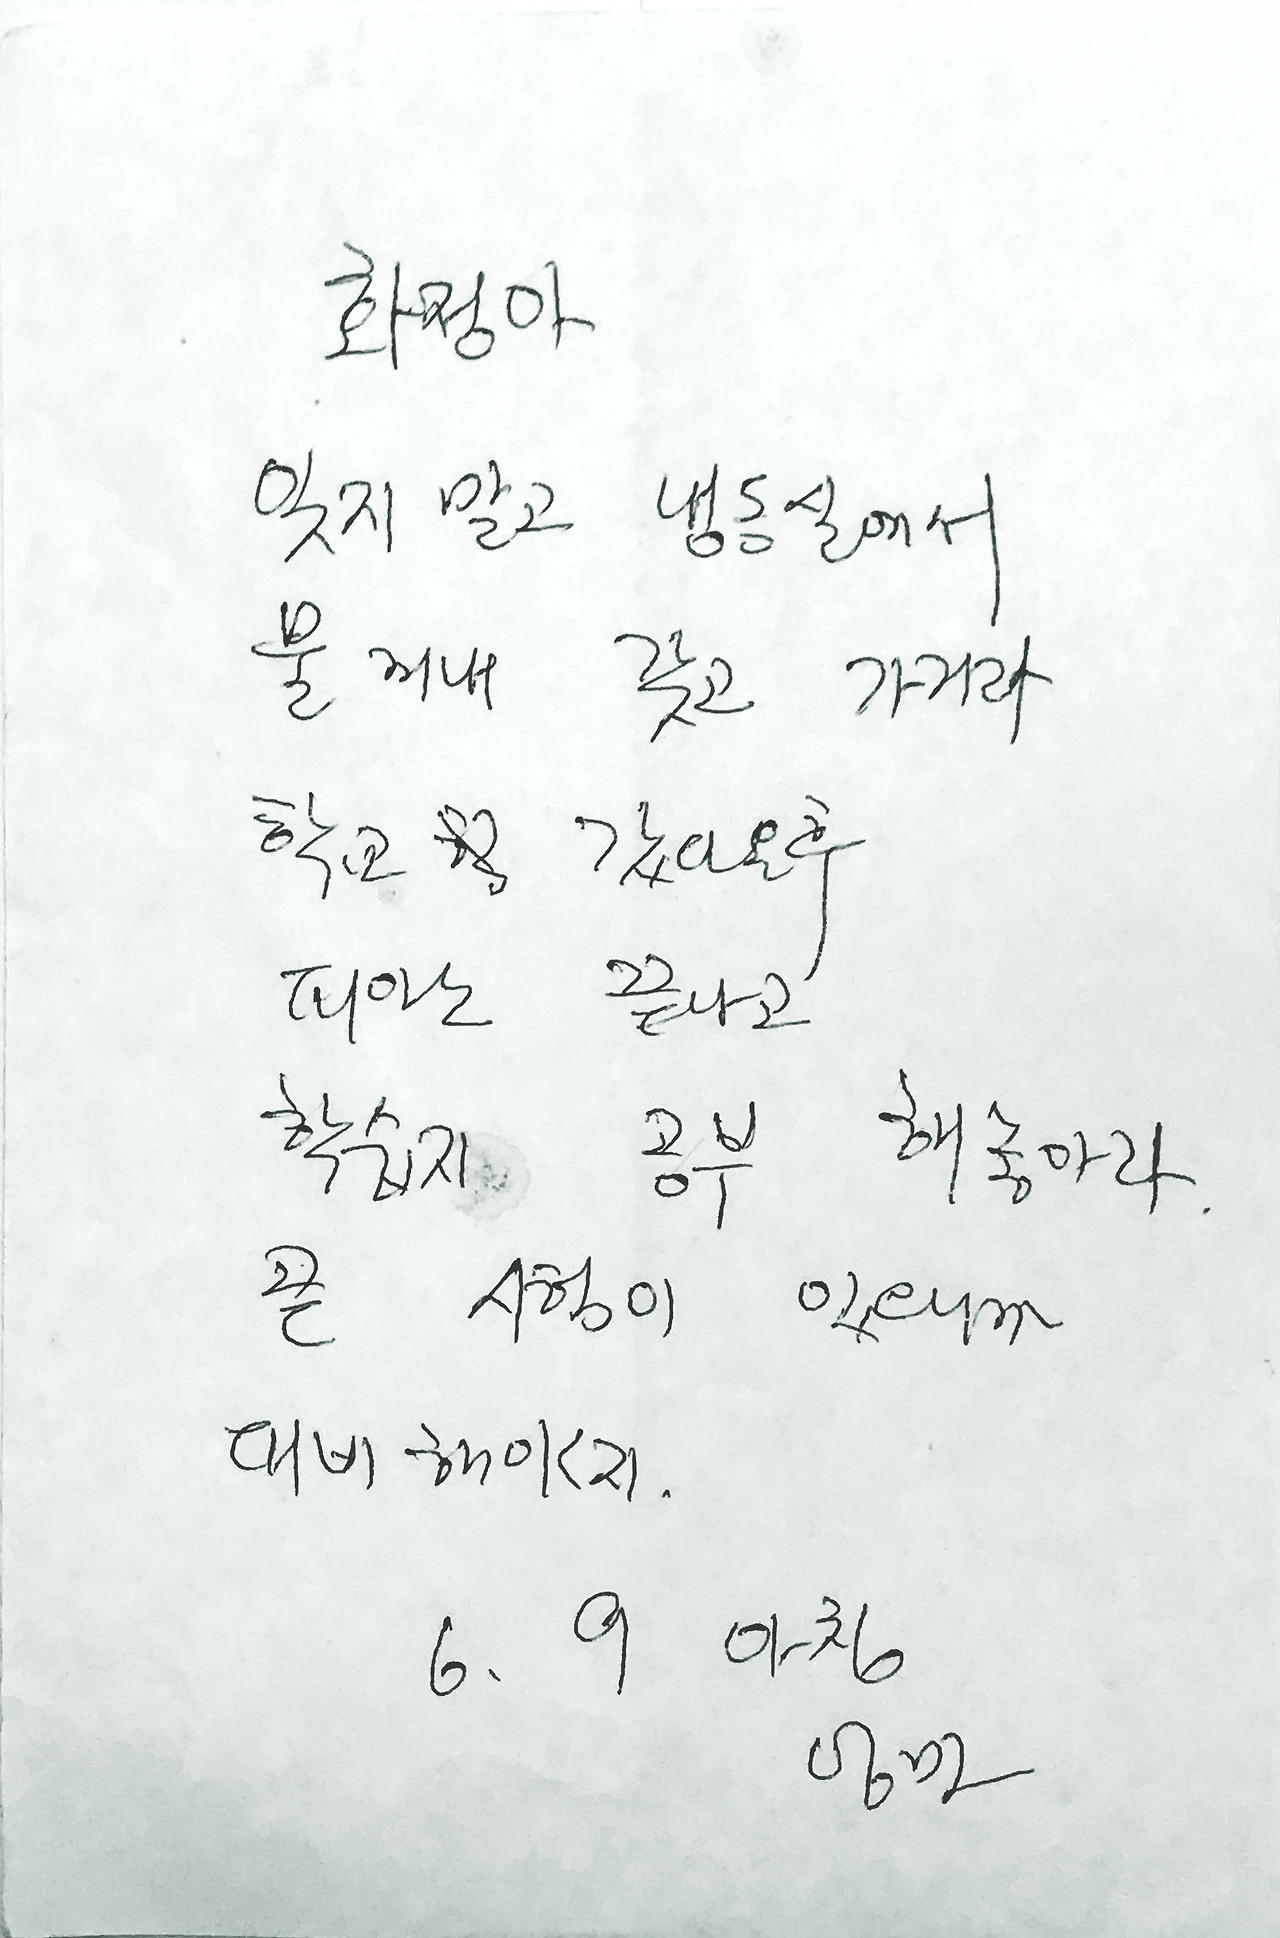 화정아
잊지 말고 냉동실에서
물 꺼내 갖고 가거라
학교 갔다온후
피아노 끝나고
학습지 공부 해놓아라.
곧 시험이 있으니까
대비 해야지.
6. 9 아침
엄마